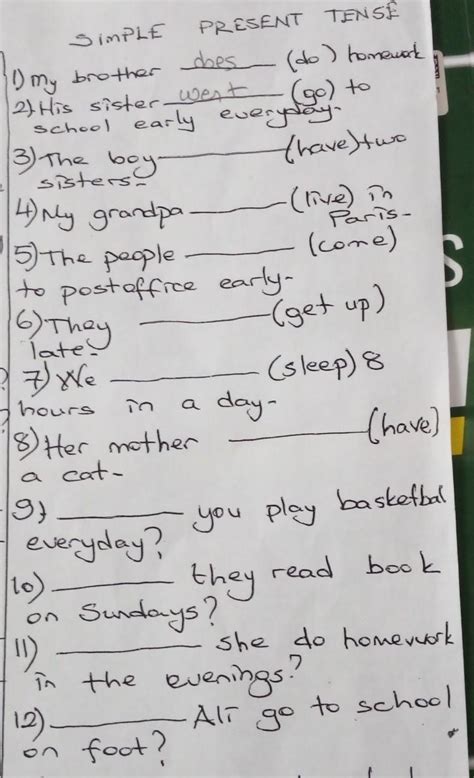 SIMPLE PRESENT TENSE
1) My brother does (do) homework
2) His sister went (go) to
school early everyday.
3) The boy ______ (have) two
sisters-
4) My grandpa ______ (live) in
Paris-
5) The people ______ (come)
to postoffice early-
6) They ______ (get up)
late-
7) We ______ (sleep) 8
hours in a day-
8) Her mother ______ (have)
a cat-
9) ______ you play basketbal
everyday?
10) ______ they read book
on Sundays?
11) ______ she do homework
in the evenings?
12) ______ Ali go to school
on foot?
S